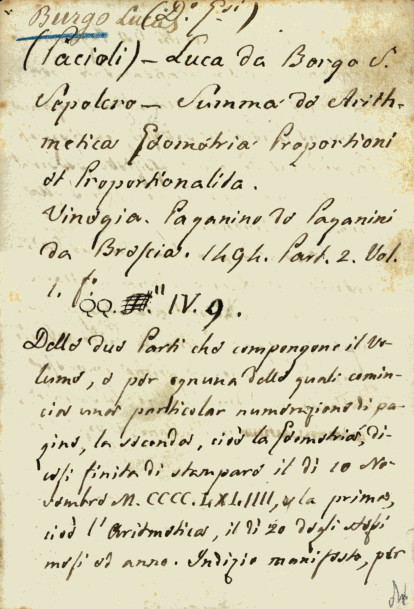 Burgo Luca (2.° Es.)
(Pacioli) – Luca da Borgo S.
Sepolcro – Summa de Arith-
metica Geometria Proportioni
et Proportionalita.
Vinegia. Paganino de Paganini
da Brescia. 1494. Part. 2. Vol.
1. f.°
QQ. IV. 9.
Delle due Parti che compongono il Vo-
lume, e per ognuna delle quali comin-
cia una particolar numerazione di pa-
gine, la seconda, cioè la Geometria, di-
cesi finita di stampare il dì 10 No-
vembre M. CCCC. LXLIIII, e la prima,
cioè l'Aritmetica, il dì 20 degli stessi
mese ed anno. Indizio manifesto, per